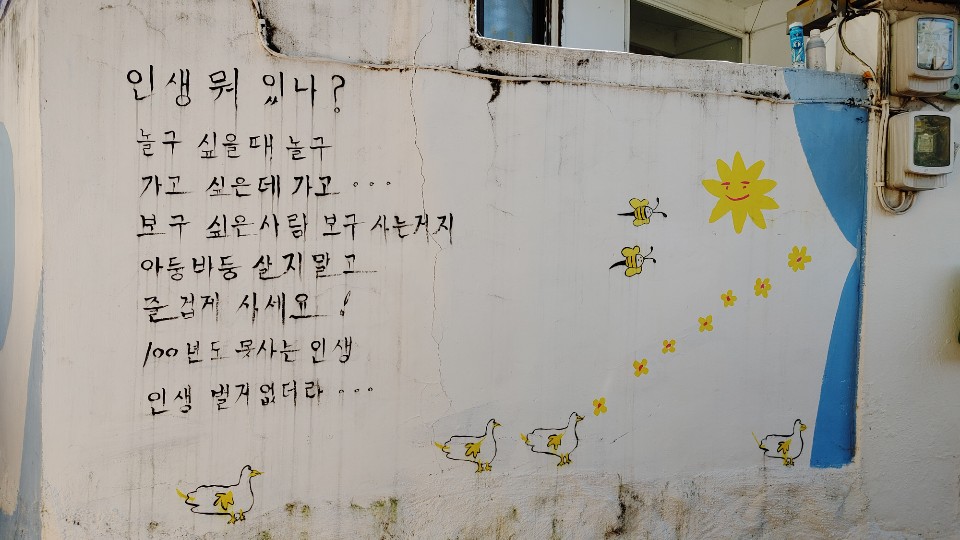 인생 뭐 있나?
놀구 싶을때 놀구
가고 싶은데 가고...
보구 싶은사람 보구 사는거지
아둥바둥 살지말고
즐겁게 사세요!
100년도 못사는 인생
인생 별거없더라...